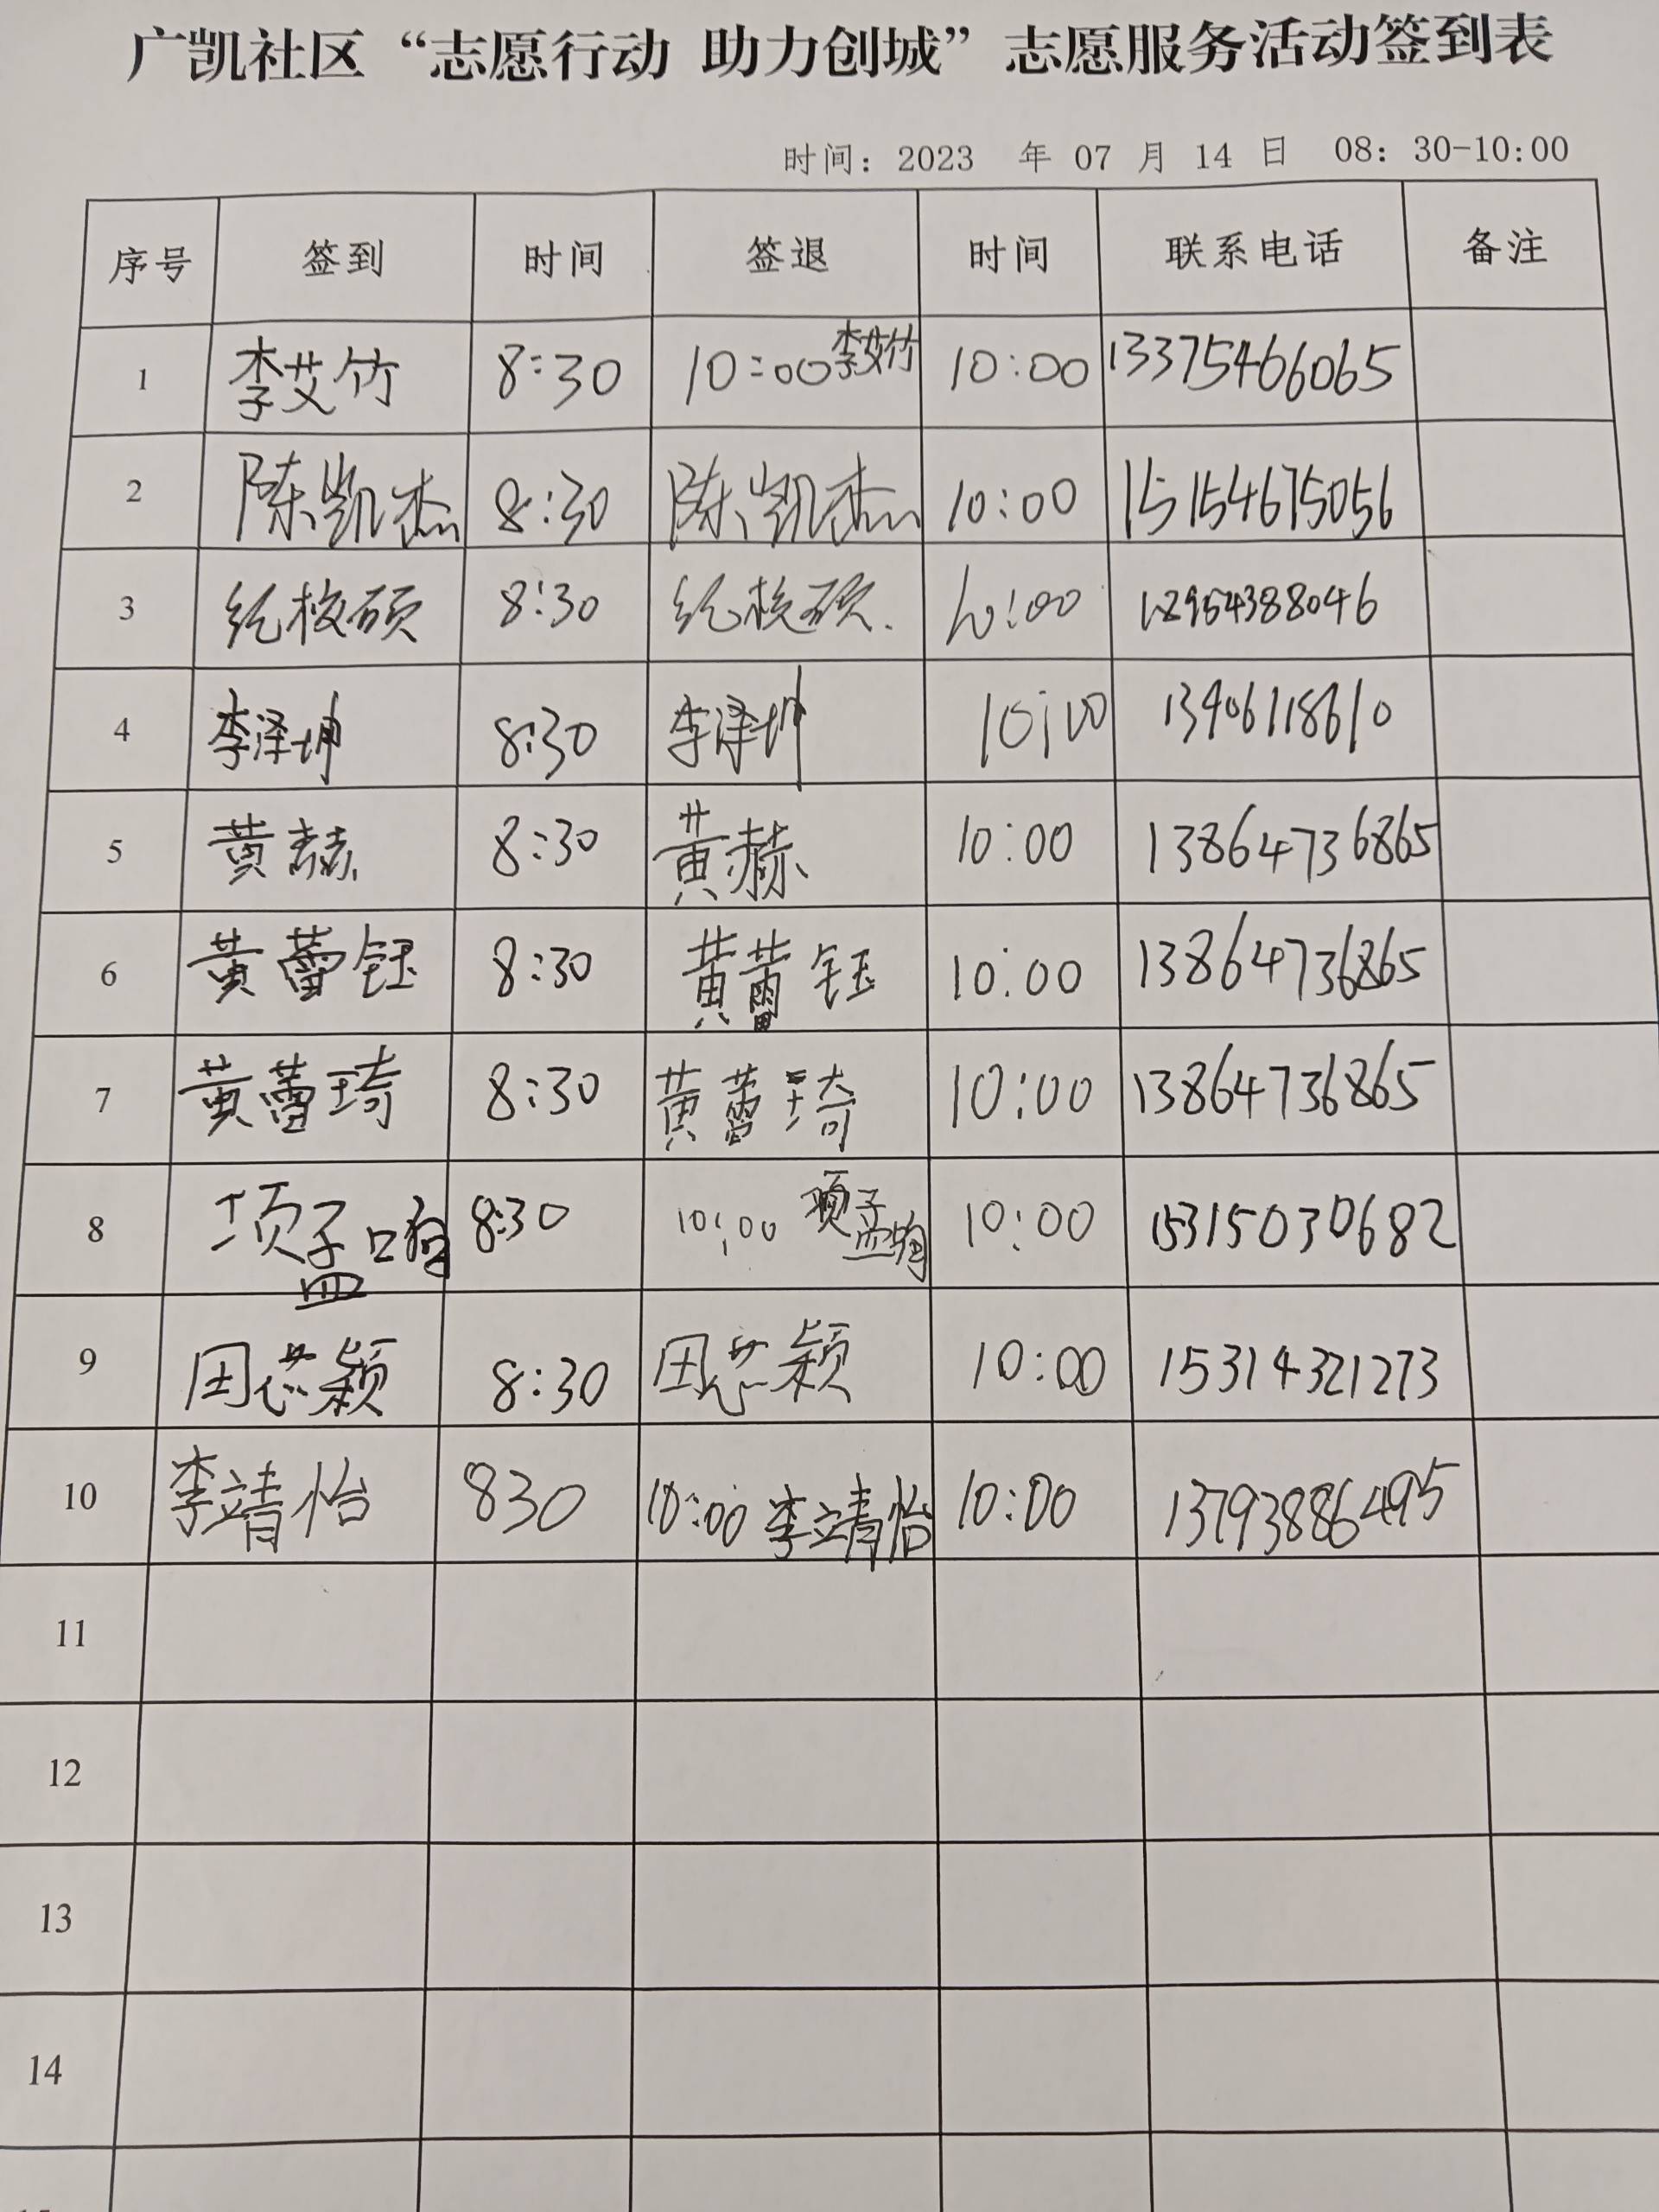 广凯社区“志愿行动 助力创城”志愿服务活动签到表
时间：2023 年 07 月 14 日 08：30-10:00
序号 签到 时间 签退 时间 联系电话 备注
1 李艾竹 8:30 10:00 李艾竹 10:00 13375466065
2 陈凯杰 8:30 陈凯杰 10:00 15154675056
3 8:30 10:00 18954388046
4 李泽坤 8:30 李泽坤 10:00
5 黄赫 8:30 黄赫 10:00 13864736865
6 黄蕾钰 8:30 黄蕾钰 10:00 13864736865
7 黄蕾琦 8:30 黄蕾琦 10:00 13864736865
8 8:30 10:00 10:00 15315030682
9 田芯颖 8:30 田芯颖 10:00 15314321273
10 李靖怡 830 10:00 李靖怡 10:00 13793886495
11
12
13
14